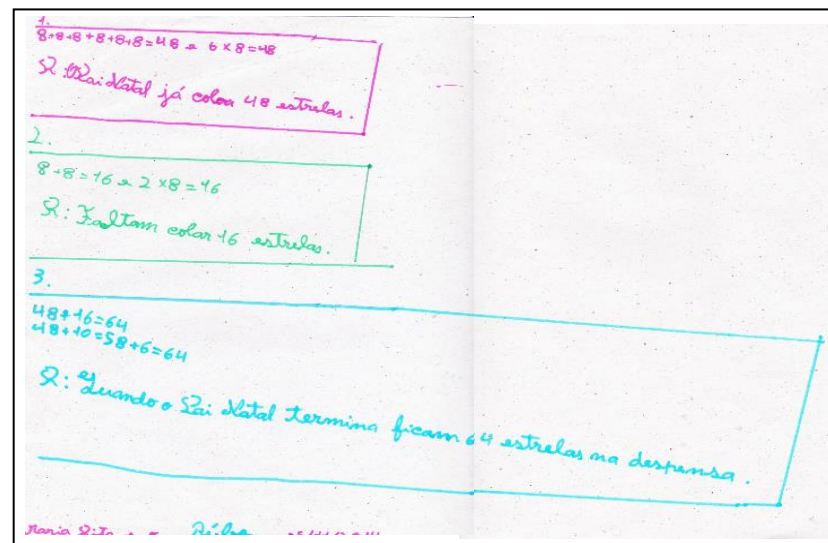 1.
8+8+8+8+8+8=48 e 6x8=48
R: O Pai Natal já colou 48 estrelas.
2.
8+8=16 e 2x8=16
R: Faltam colar 16 estrelas.
3.
48+16=64
48+10=58+6=64
R: Quando o Pai Natal termina ficam 64 estrelas na despensa.
Maria Rita e